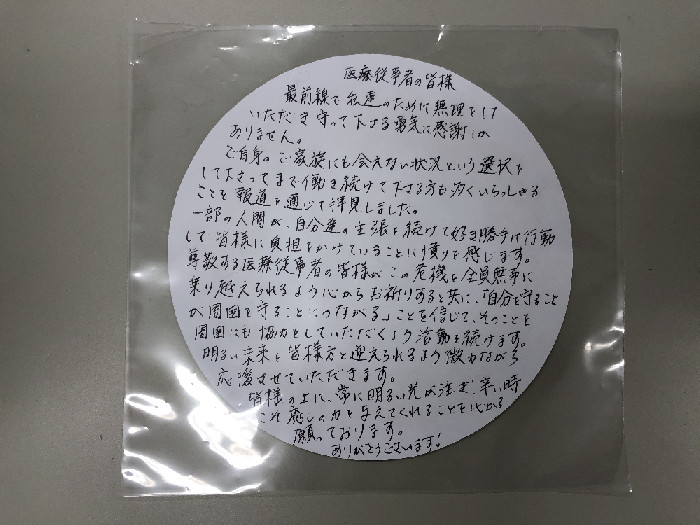 医療従事者の皆様
最前線で私達のために無理をして
いただき守って下さる勇気に感謝しか
ありません。
ご自身。ご家族にも会えない状況という選択を
して下さってまで働き続けて下さる方も多くいらっしゃる
ことを報道を通じて拝見しました。
一部の人間が、自分達の主張を続けて好き勝手に行動
して皆様に負担をかけていることに憤りを感じます。
尊敬する医療従事者の皆様がこの危機を全員無事に
乗り越えられるよう心からお祈りすると共に、「自分を守ること
が周囲を守ることにつながる」ことを信じて、そのことを
周囲にも協力をしていただくよう活動を続けます。
明るい未来を皆様方と迎えられるよう微力ながら
応援させていただきます。
皆様の上に、常に明るい光が注ぎ、辛い時
こそ癒しの力を与えてくれることを心から
願っております。
ありがとうございます!